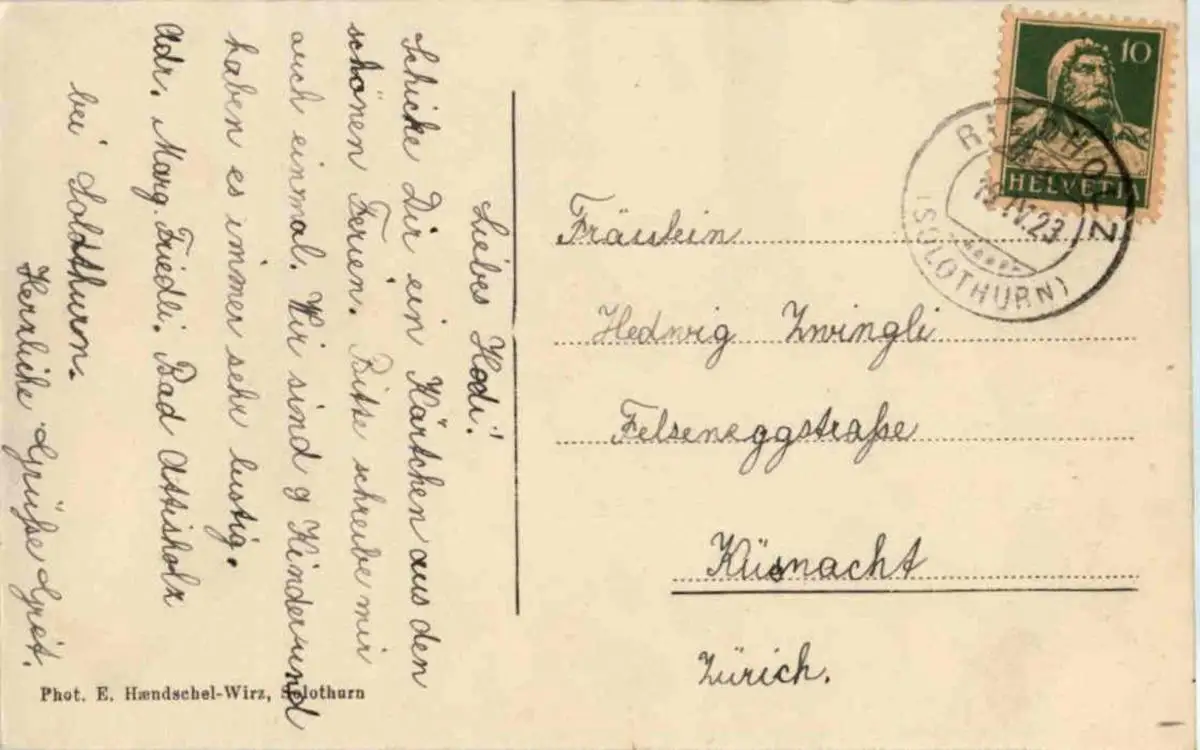 Liebes Hedi!
Schicke Dir ein Kärtchen aus den
schönen Ferien. Bitte schreibe mir
auch einmal. Wir sind 9 Kinder und
haben es immer sehr lustig.
Adr. Marg. Friedli. Bad Attisholz
bei Solothurn.
Herzliche Grüße Gret.
Phot. E. Hændschel-Wirz, Solothurn
10
HELVETIA
(SOLOTHURN)
Fräulein
Hedwig Zwingli
Felseneggstraße
Küsnacht
Zürich.